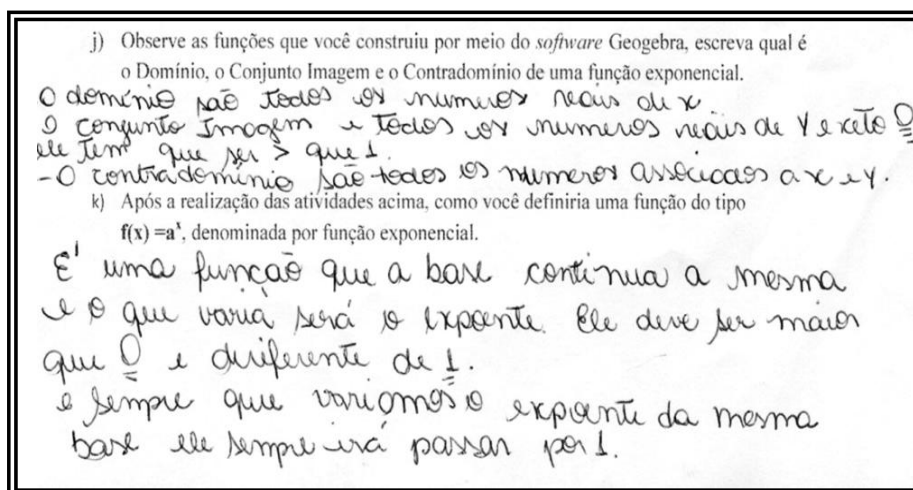 j) Observe as funções que você construiu por meio do software Geogebra, escreva qual é
o Domínio, o Conjunto Imagem e o Contradomínio de uma função exponencial.
O domínio são todos os numeros reais de x.
O conjunto Imagem e todos os numeros reais de Y exceto 0
ele tem que ser > que 1.
- O contradomínio são todos os numeros associados a x e y.
k) Após a realização das atividades acima, como você definiria uma função do tipo
f(x) =aˣ, denominada por função exponencial.
E' uma função que a base continua a mesma
e o que varia será o expoente. Ele deve ser maior
que 0 e diriferente de 1.
e sempre que variamos o expoente da mesma
base ele sempre irá passar por 1.